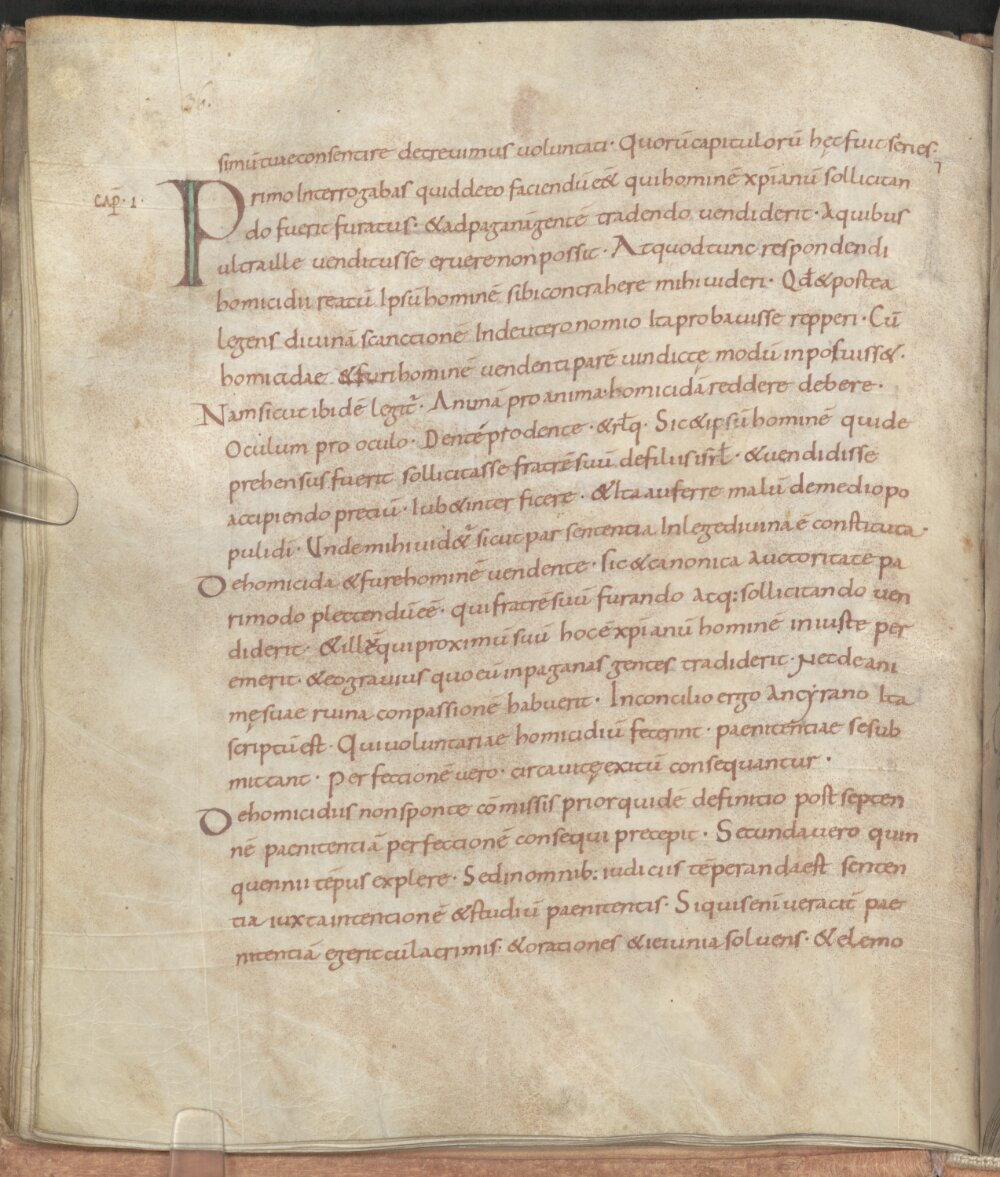 36.
simū tuae consentire decrevimus voluntati · Quorū capitulorū hęc fuit series ·
CAP̄ · 1 ·
Primo Interrogabas quid de eo faciendū e& qui hominē xp̄ianū sollicitan
do fuerit furatus · & ad paganā gentē tradendo vendiderit · A quibus
ultra ille venditus se eruere non possit · At quod tunc respondendi
homicidii reatū Ipsū hominē sibi contrahere mihi videri · Qd̄ & postea
legens divinā scanctionē In deuteronomio Ita probavisse repperi · Cū
homicidae & furi hominē vendenti parē vindictę modū inposuiss& ·
Nam sicut ibidē legit̄ · Animā pro anima homicidā reddere debere ·
Oculum pro oculo · Dentē pro dente · & rl̄q · Sic & ipsū hominē qui de
prehensus fuerit sollicitasse fratrē suū de filiis isrl̄ · & vendidisse
accipiendo preciū · Iub& interficere · & Ita auferre malū de medio po
puli dī · Unde mihi vid&ur̄ sicut par sententia In lege divina ē constituta ·
De homicida & fure hominē vendente · sic & canonica auctoritate pa
ri modo plectendū eē · qui fratrē suū furando atq: sollicitando ven
diderit · & illē qui proximū suū hoc ē xp̄ianū hominē iniuste per
emerit · & eo gravius quo eū in paganas gentes tradiderit · Nec de ani
mę suae ruina conpassionē habuerit · In concilio ergo Ancyrano Ita
scriptū est · Qui voluntariae homicidiū fecerint · paenitentiae se sub
mittant · Perfectionē vero · circa vitę exitū consequantur ·
De homicidiis non sponte cōmissis prior quidē definitio post septen
nē paenitentiā perfectionē consequi precepit · Secunda vero quin
quennii tēpus explere · Sed in omnib: iudiciis tēperanda est senten
tia iuxta intentionē & studiū paenitentis · Si quis enī veracit̄ pae
nitentiā egerit cū lacrimis · & orationes & ieiunia solvens · & elemo